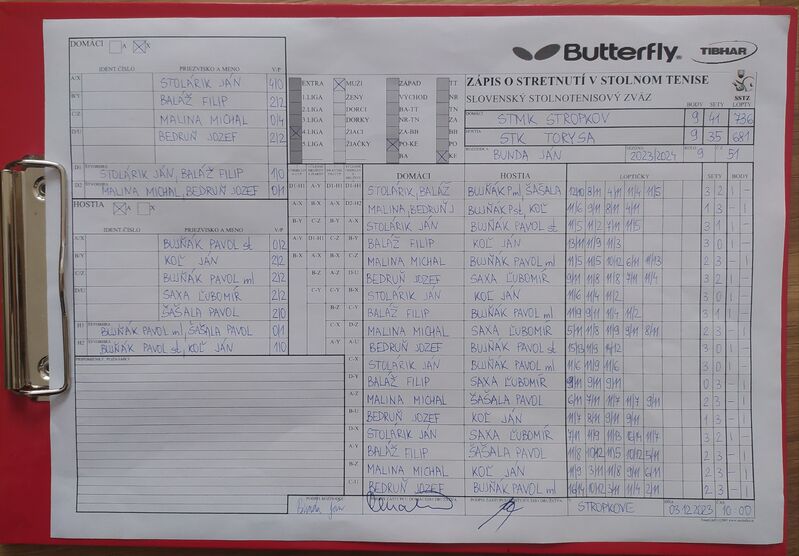 Butterfly TIBHAR
ZÁPIS O STRETNUTÍ V STOLNOM TENISE
SLOVENSKÝ STOLNOTENISOVÝ ZVÄZ
SSTZ
BODY SETY LOPTY
DOMÁCI STMK STROPKOV 9 41 736
HOSTIA STK TORYSA 9 35 681
ROZHODCA BUNDA JÁN SEZÓNA 2023/2024 KOLO 9 Č. 51
EXTRA MUŽI ZÁPAD TT
1.LIGA ŽENY VÝCHOD NR
2.LIGA DORCI BA-TT TN
3.LIGA DORKY NR-TN ZA
4.LIGA ŽIACI ZA-BB BH
5.LIGA ŽIAČKY PO-KE PO
BA KE
DOMÁCI A X
IDENT.ČÍSLO PRIEZVISKO A MENO V/P
A/X STOLÁRIK JÁN 4/0
B/Y BALÁŽ FILIP 2/2
C/Z MALINA MICHAL 0/4
D/U BEDRUŇ JOZEF 2/2
D1 ŠTVORHRA STOLÁRIK JÁN, BALÁŽ FILIP 1/0
D2 MALINA MICHAL, BEDRUŇ JOZEF 0/1
HOSTIA A X
IDENT.ČÍSLO PRIEZVISKO A MENO V/P
A/X BUJŇÁK PAVOL st 0/2
B/Y KOĽ JÁN 2/2
C/Z BUJŇÁK PAVOL ml 2/2
D/U SAXA ĽUBOMÍR 2/2
ŠAŠALA PAVOL 2/0
H1 ŠTVORHRA BUJŇÁK PAVOL ml, ŠAŠALA PAVOL 0/1
H2 ŠTVORHRA BUJŇÁK PAVOL st, KOĽ JÁN 1/0
PRIPOMIENKY, POZNÁMKY
DOMÁCI HOSTIA LOPTIČKY SETY BODY
STOLÁRIK, BALÁŽ BUJŇÁK P ml, ŠAŠALA 12/10 8/11 4/11 11/4 11/5 3 2 1 -
MALINA, BEDRUŇ J BUJŇÁK P st, KOĽ 11/6 9/11 8/11 4/11 1 3 - 1
STOLÁRIK JÁN BUJŇÁK PAVOL st 11/5 11/2 7/11 11/5 3 1 1 -
BALÁŽ FILIP KOĽ JÁN 13/11 11/9 11/3 3 0 1 -
MALINA MICHAL BUJŇÁK PAVOL ml 11/5 11/5 10/12 6/11 11/13 2 3 - 1
BEDRUŇ JOZEF SAXA ĽUBOMÍR 9/11 11/8 11/8 7/11 11/4 3 2 1 -
STOLÁRIK JÁN KOĽ JÁN 11/6 11/4 11/2 3 0 1 -
BALÁŽ FILIP BUJŇÁK PAVOL ml 11/9 9/11 11/4 11/2 3 1 1 -
MALINA MICHAL SAXA ĽUBOMÍR 5/11 11/8 11/9 9/11 8/11 2 3 - 1
BEDRUŇ JOZEF BUJŇÁK PAVOL st 15/13 11/9 14/12 3 0 1 -
STOLÁRIK JÁN BUJŇÁK PAVOL ml 11/6 11/9 11/6 3 0 1 -
BALÁŽ FILIP SAXA ĽUBOMÍR 9/11 9/11 9/11 0 3 - 1
MALINA MICHAL ŠAŠALA PAVOL 6/11 11/7 11/7 11/7 9/11 2 3 - 1
BEDRUŇ JOZEF KOĽ JÁN 11/7 8/11 9/11 9/11 1 3 - 1
STOLÁRIK JÁN SAXA ĽUBOMÍR 7/11 11/9 11/13 16/14 11/7 3 2 1 -
BALÁŽ FILIP ŠAŠALA PAVOL 11/8 10/12 11/5 10/12 5/11 2 3 - 1
MALINA MICHAL KOĽ JÁN 11/9 3/11 11/8 9/11 6/11 2 3 - 1
BEDRUŇ JOZEF BUJŇÁK PAVOL ml 16/14 10/12 3/11 11/4 2/11 2 3 - 1
PODPIS ROZHODCU Bunda Ján
STROPKOVE DŇA 03.12.2023 ČAS 10:00